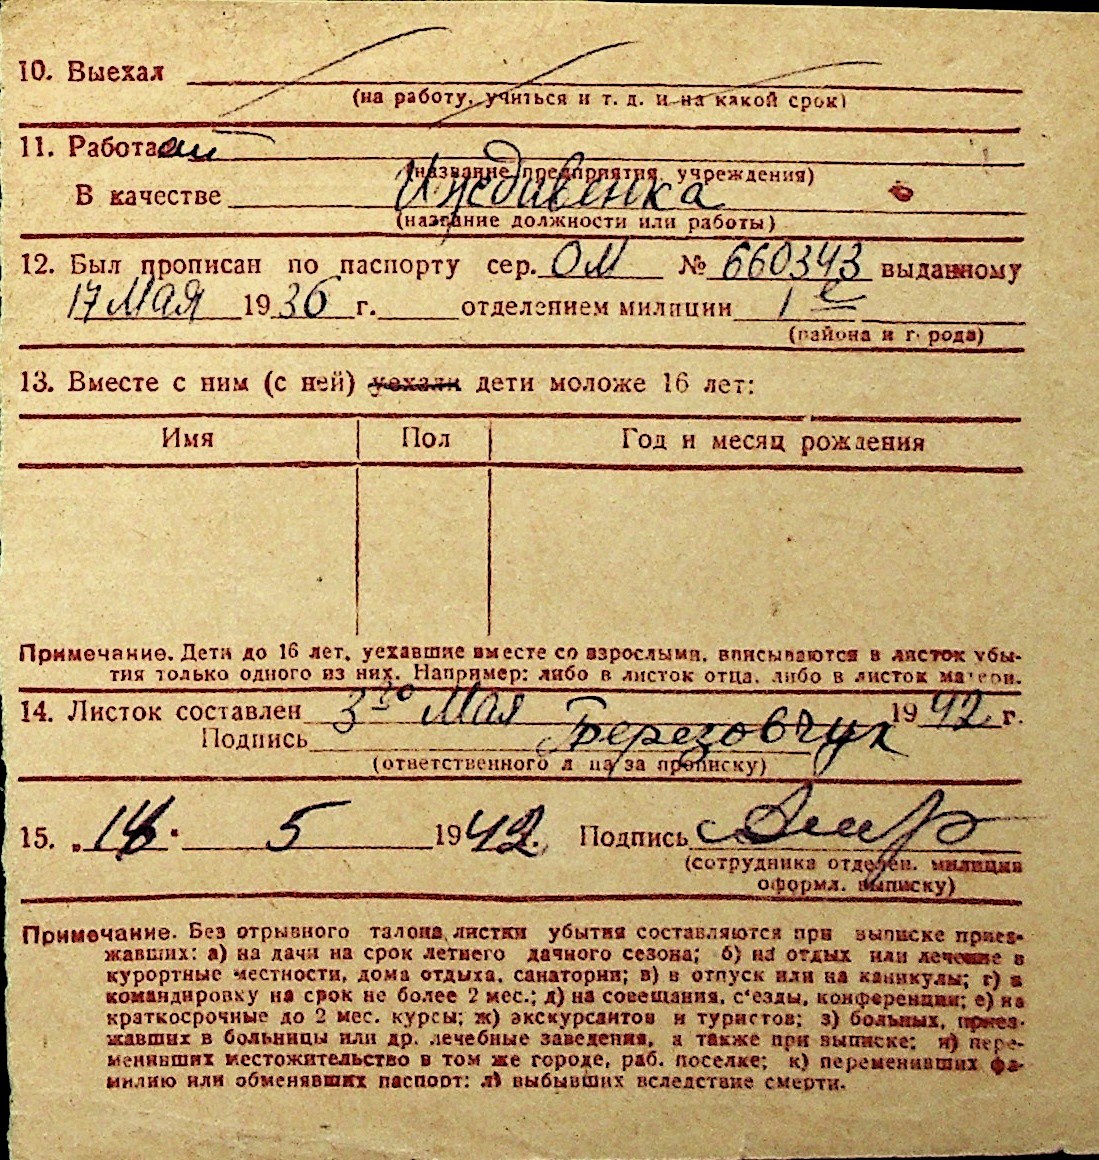 10. Выехал
(на работу, учиться и т. д. и на какой срок)
11. Работает
(название предприятия, учреждения)
В качестве Иждивенка
(название должности или работы)
12. Был прописан по паспорту сер. ОМ № 660343 выданному
17 Мая 1936 г. отделением милиции 1е
(района и города)
13. Вместе с ним (с ней) уехали дети моложе 16 лет:
Имя Пол Год и месяц рождения
Примечание. Дети до 16 лет, уехавшие вместе со взрослыми, вписываются в листок убы-
тия только одного из них. Например: либо в листок отца, либо в листок матери.
14. Листок составлен 3го Мая 1942 г.
Подпись Березовчук
(ответственного лица за прописку)
15. „ 5 1942. Подпись
(сотрудника отделен. милиции
оформл. выписку)
Примечание. Без отрывного талона листки убытия составляются при выписке приез-
жавших: а) на дачи на срок летнего дачного сезона; б) на отдых или лечение в
курортные местности, дома отдыха, санатории; в) в отпуск или на каникулы; г) в
командировку на срок не более 2 мес.; д) на совещания, с'езды, конференции; е) на
краткосрочные до 2 мес. курсы; ж) экскурсантов и туристов; з) больных, приез-
жавших в больницы или др. лечебные заведения, а также при выписке: и) пере-
менивших местожительство в том же городе, раб. поселке; к) переменивших фа-
милию или обменявших паспорт; л) выбывших вследствие смерти.